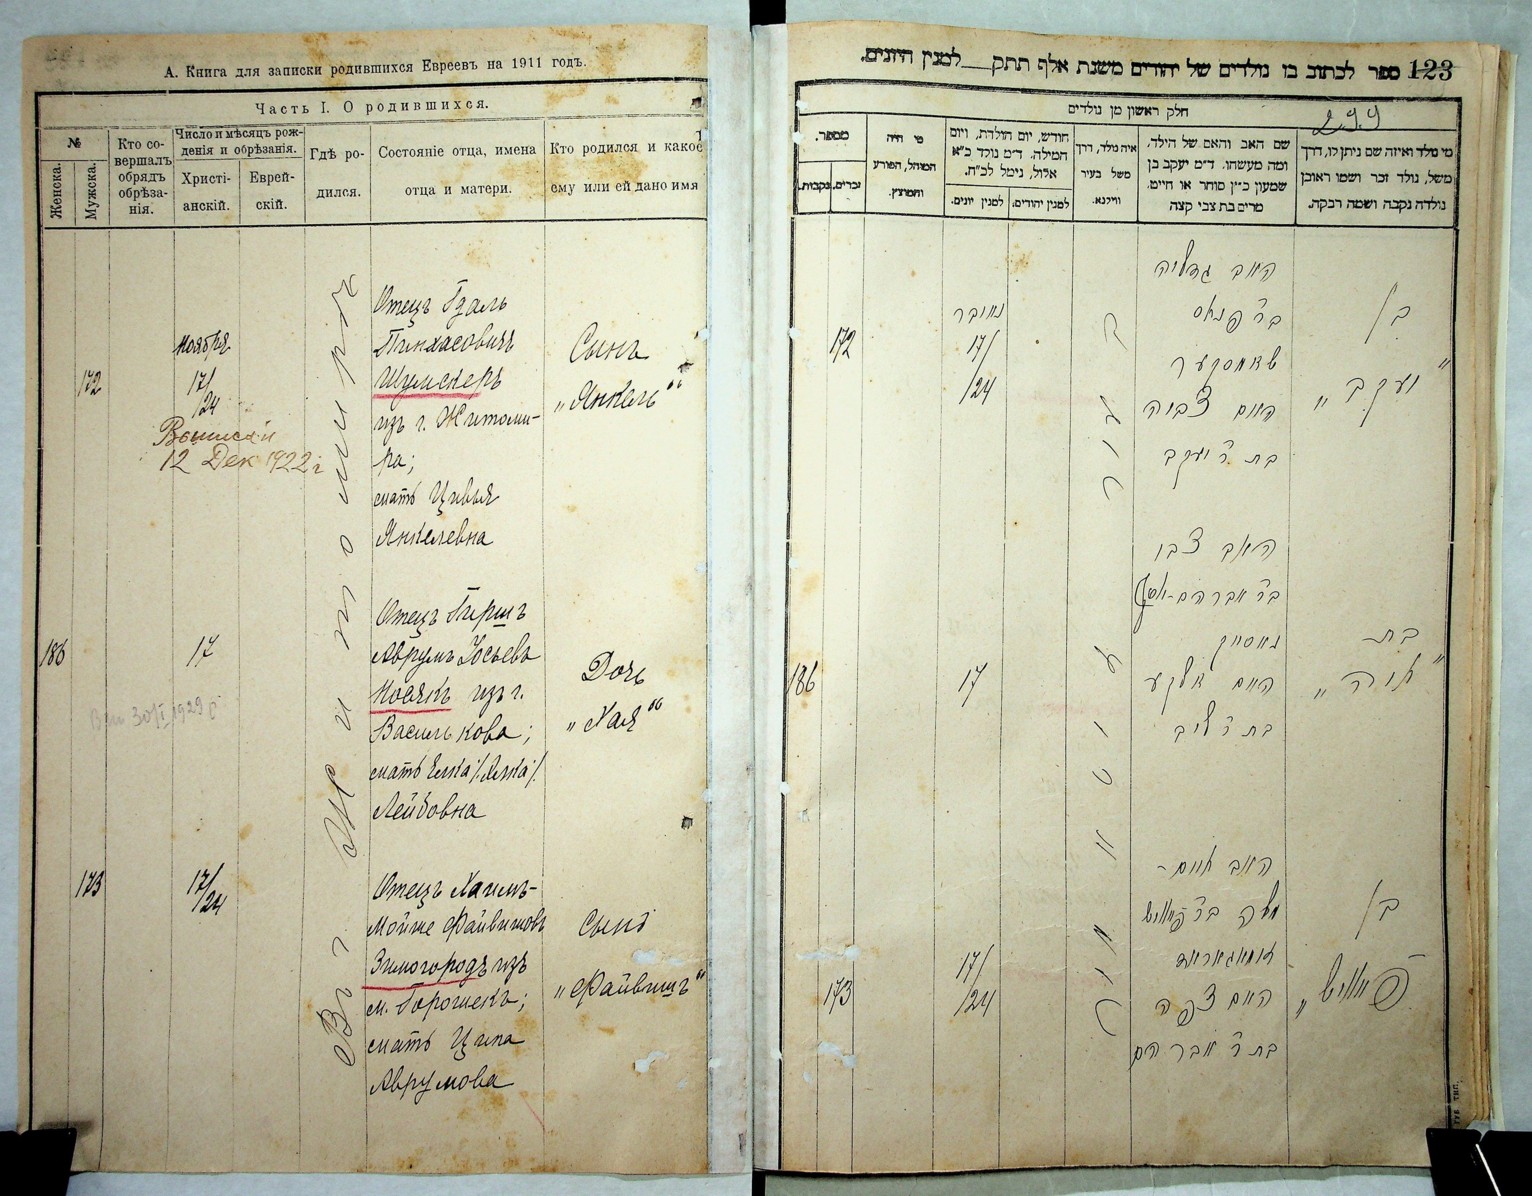 А. Книга для записки родившихся Евреевъ на 1911 годъ.
Часть I. О родившихся.
№
Женска.
Мужска.
Кто со-
вершалъ
обрядъ
обрѣза-
нія.
Число и мѣсяцъ рож-
денія и обрѣзанія.
Христі-
анскій.
Еврей-
скій.
Гдѣ ро-
дился.
Состояніе отца, имена
отца и матери.
Кто родился и какое
ему или ей дано имя
Въ г. Житомирѣ
172
Ноября
17/
/24
Выписки
12 Дек 1922 г
Отецъ Гдаль
Пинхасовичъ
Шумскеръ
изъ г. Житоми-
ра;
мать Цивья
Янкелевна
Сынъ
„Янкель“
186
17
30/I 1929
Отецъ Гиршъ
Аврумъ Іосьевъ
Мосякъ изъ г.
Василькова;
мать Елка /Хелка/.
Лейбовна
Дочь
„Хая“
173
17/
/24
Отецъ Хаимъ-
Мойше Файвишовъ
Зимогородъ изъ
м. Горошекъ;
мать Ципа
Аврумова
Сынъ
„Файвишъ“
ספר לכתוב בו נולדים של יהודים משנת אלף תתק__למנין היונים.
123
299
חלק ראשון מן נולדים
מספר.
נקבות.
זכרים.
מי היה
המוהל, הפורע
והמוצץ.
חודש, יום הולדת, ויום
המילה. ד״מ נולד כ״א
אלול, נימל לכ״ח.
למנין יונים.
למנין יהודים.
איה נולד, דרך
משל בעיר
ווילנא.
שם האב והאם של הילד,
ומה מעשהו. ד״מ יעקב בן
שמעון כ״ץ סוחר או חייט.
מרים בת צבי קצה
מי נולד ואיזה שם ניתן לו, דרך
משל, נולד זכר ושמו ראובן
נולדה נקבה ושמה רבקה.
172
נאובר
17/
/24
האב גדליה
בר פנחס
האם צביה
בת ר יעקב
בן
„יעקב“
186
17
האב צבי
האם
בת ר ליב
בת
„חיה“
173
17/
/24
האב חיים-
משה בר פייוויש
האם צפה
בת ר אברהם
בן
„פייוויש“